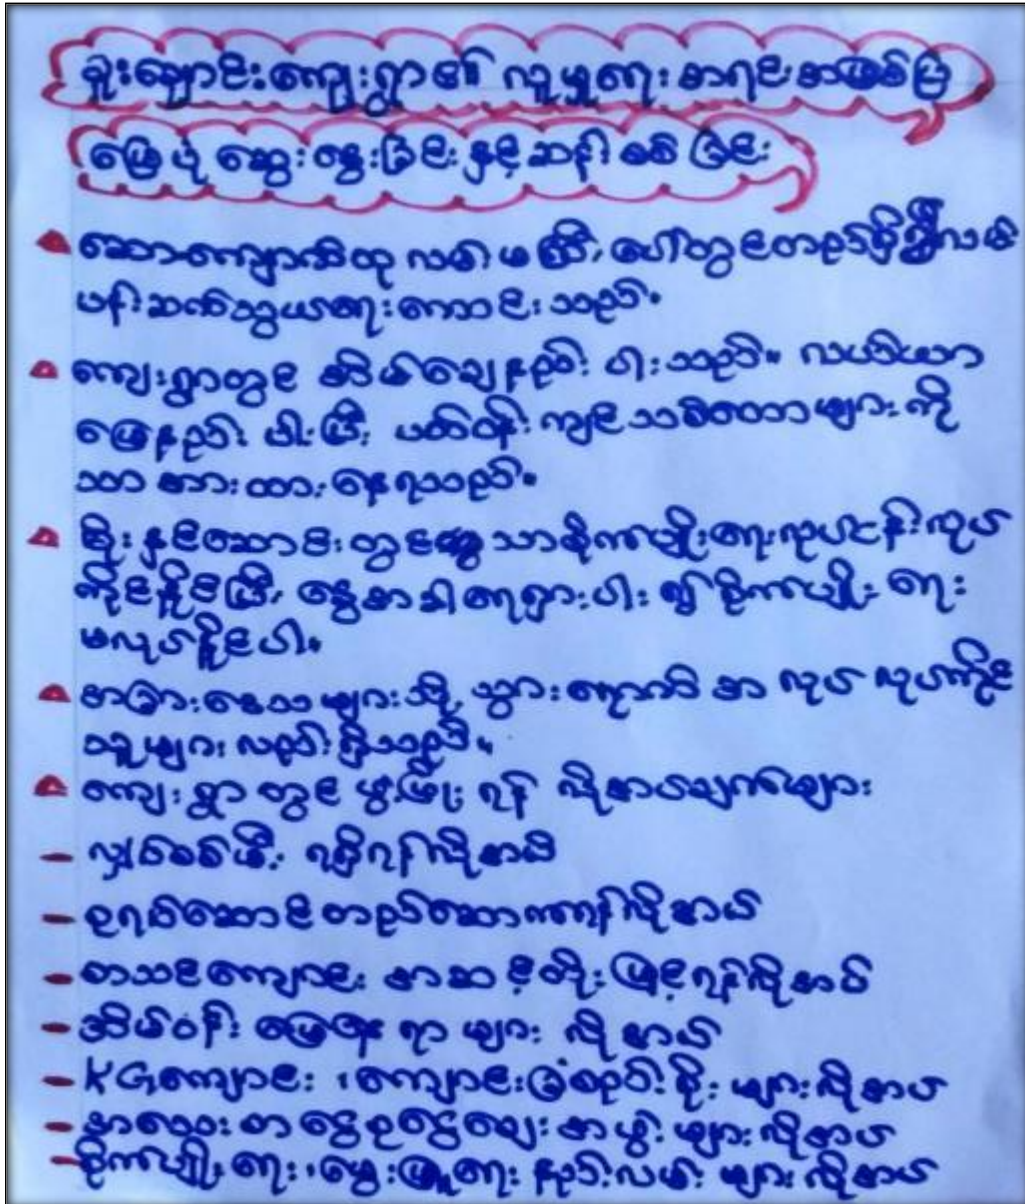 ခူးချောင်းကျေးရွာ၏ လူမှုရေး အရင်းအမြစ်ပြ
မြေပုံ ဆွေးနွေးခြင်း နှင့် ဆန်းစစ်ခြင်း
ဆောကျောက်ထု လမ်းမကြီး ပေါ်တွင်တည်ရှိ၍ လမ်း
ပန်းဆက်သွယ်ရေးကောင်းသည်။
ကျေးရွာတွင် အိမ်ခြေနည်းပါးသည်။ လယ်ယာ
မြေနည်းပါးပြီး ပတ်ဝန်းကျင်သစ်တောများကို
သာ အားထားနေရသည်။
မိုးနှင့်ဆောင်းတွင် သာစိုက်ပျိုးရေးလုပ်ငန်းလုပ်
ကိုင်နိုင်ပြီး နွေအခါရေရှားပါး၍ စိုက်ပျိုးရေး
မလုပ်နိုင်ပါ။
အခြားဒေသများသို့ သွားရောက် အလုပ်လုပ်ကိုင်
သူများလည်းရှိသည်။
ကျေးရွာတွင် ဖွံ့ဖြိုးရန် လိုအပ်ချက်များ
- လျှပ်စစ်မီး ရရှိရန်လိုအပ်
- စုရပ်ဆောင်တည်ဆောက်ရန်လိုအပ်
- စာသင်ကျောင်း အဆင့်တိုးမြှင့်ရန်လိုအပ်
- အိမ်ဝန်း မြေနေရာများ လိုအပ်
- KGကျောင်း၊ ကျောင်းခြံစည်းရိုးများလိုအပ်
- အသေးစား ငွေစုငွေချေးအဖွဲ့များလိုအပ်
- စိုက်ပျိုးရေး၊ မွေးမြူရေး နည်းလမ်းများလိုအပ်